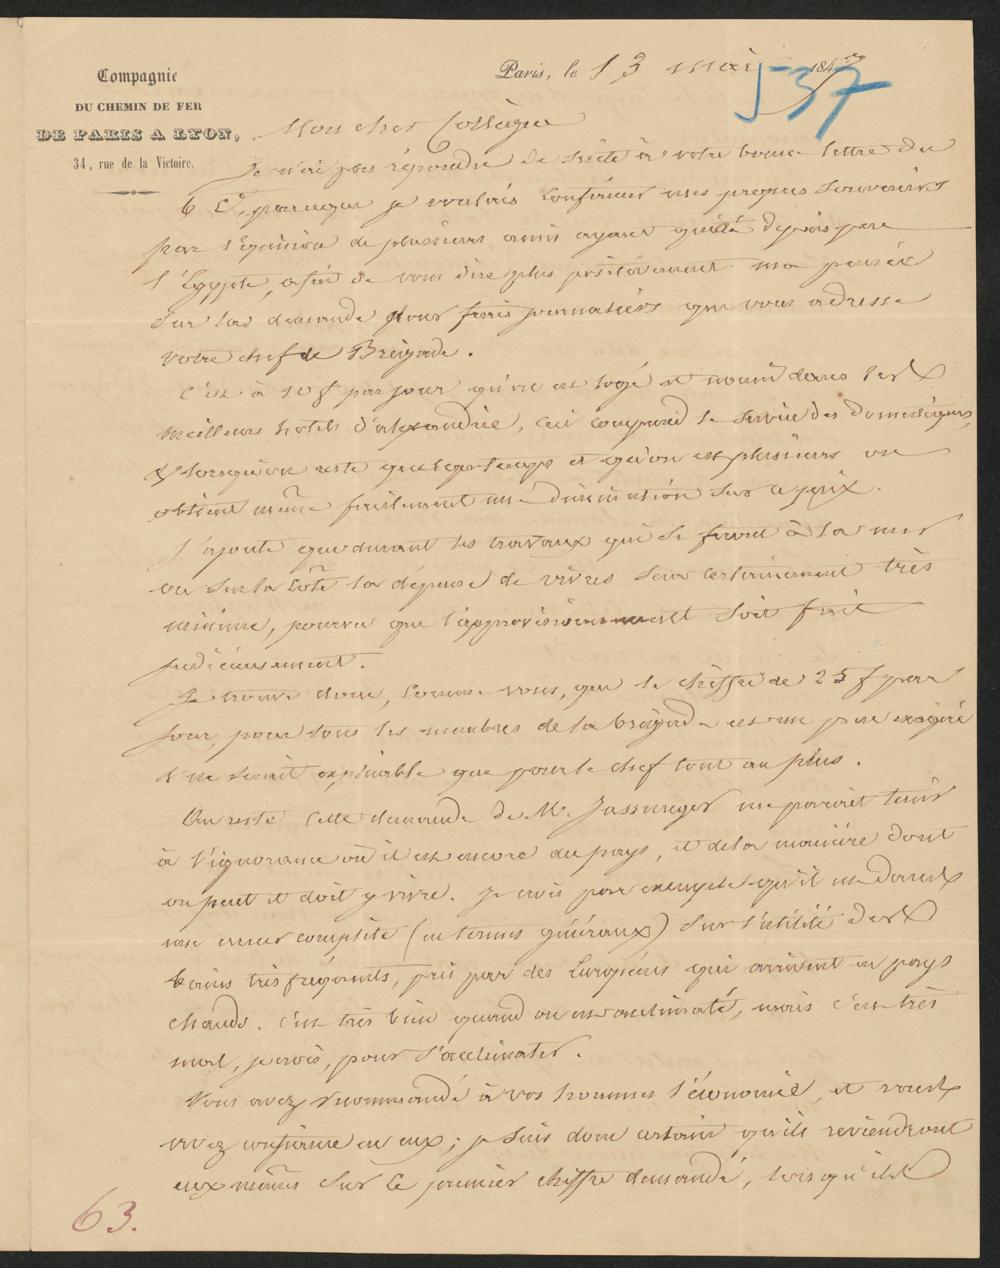 Compagnie
DU CHEMIN DE FER
DE PARIS A LYON,
34, rue de la Victoire.
Paris, le 13 mai 1847
537
Mon cher Collègue
Je n'ai pas répondu de suite à votre bonne lettre du
6 Ct, parceque je voulais conférer mes propres souvenirs
par l'opinion de plusieurs amis ayant quitté depuis peu
l'Égypte, afin de vous dire plus positivement ma pensée
sur la demande pour frais journaliers que vous adresse
votre chef de Brigade.
C'est à 10 f par jour qu'on est logé et nourri dans les
meilleurs hotels d'alexandrie, ceci comprend le service des domestiques,
& lorsqu'on reste quelque temps et qu'on est plusieurs on
obtient même facilement une diminution sur ce prix.
J'ajoute que durant les travaux qui se feront à la mer
ou sur la côte la dépense de vivres sera certainement très
minime, pourvu que l'approvisionnement soit fait
judicieusement.
Je trouve donc, comme vous, que le chiffre de 25 f par
jour, pour tous les membres de la brigade est un peu exagéré
& ne serait explicable que pour le chef tout au plus.
Au reste cette demande de Mr. Jassneger me parait tenir
à l'ignorance où il est encore du pays, et de la manière dont
on peut et doit y vivre. Je crois par exemple qu'il est dans
une erreur complète (en termes généraux) sur l'utilité des
bains très fréquents, pris par des Européens qui arrivent en pays
chauds. C'est très bien quand on est acclimaté, mais c'est très
mal, je crois, pour s'acclimater.
Vous avez recommandé à vos hommes l'économie, et vous
avez confiance en eux; je suis donc certain qu'ils reviendront
eux mêmes sur ce premier chiffre demandé, lorsqu'ils
63.